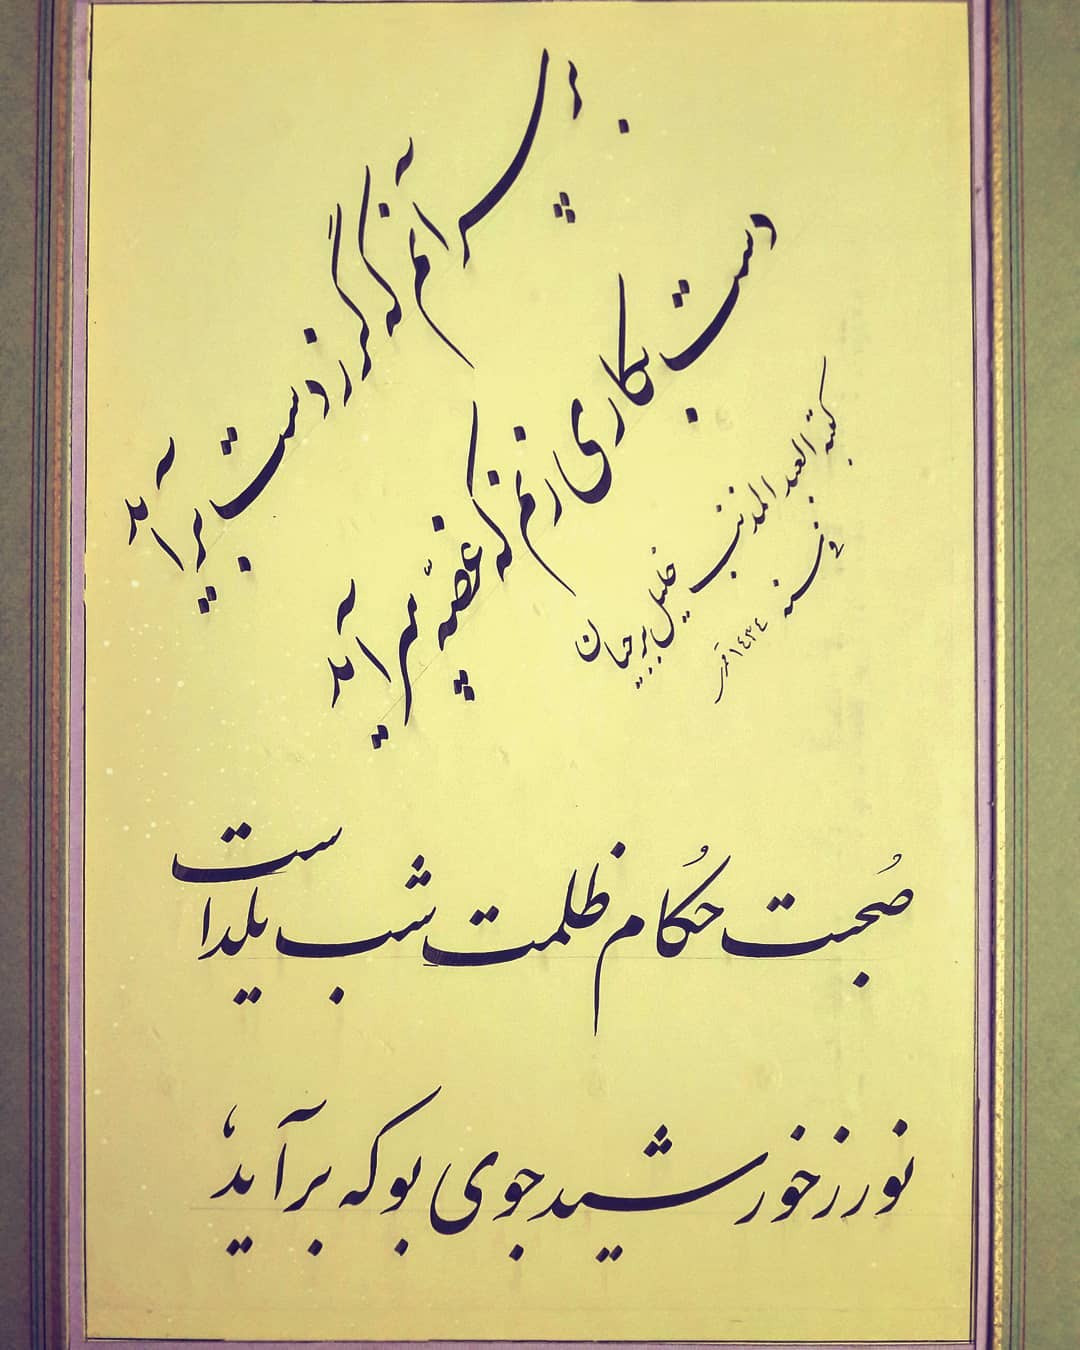 بر سر آنم که گر ز دست برآید
دست بکاری زنم که غصّه سر آید
کتبه العبد المذنب خلیل برجیان
فی سنه ۱۴۳۴
صُحبت حُکام ظلمت شب یلداست
نور ز خورشید جوی بو که برآید